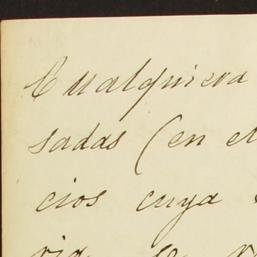 Cualquiera
sadas (en el
cios cuya